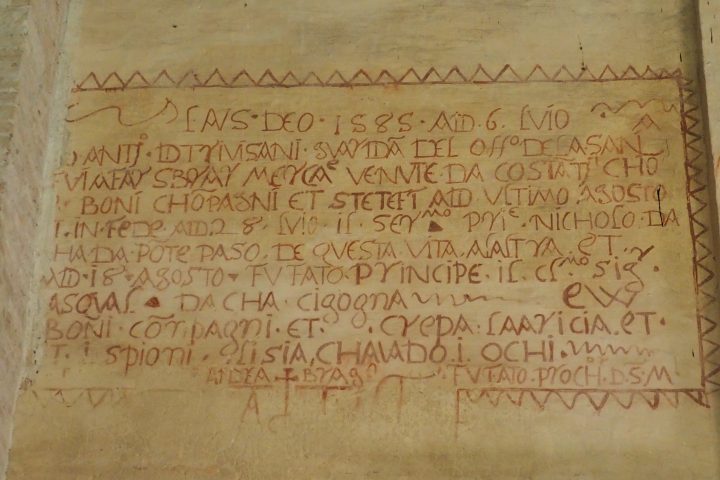 LAUS · DEO · 1585 · AID · 6 · LUIO
ANTꝪ · D TRIVISANI · GVARDA DEL OFFº DE LA SANI
FV MI FAR SBORAR MERCAᵉ VENUTE DA COSTATᴵ CHÕ
BONI CHOPAGNI ET STETEFT AID ULTIMO AGOSTO
I. IN FEDE AID 28 LVIO IL SERᵐᵒ PRIᵉ · NICHOLO DA
HA DA POTE PASO DE QUESTA VITA ALALTRA · ET ·
AID · 18 · AGOSTO · FU FATO PRINCIPE · IL CLᵐᵒ SIGʳ
ASQUAL DA CHA CIGOGNA
BONI · COM̃PAGNI · ET · CREPA · LAARICIA · ET ·
T · I SPIONI · GLI SIA CHAVADO · I OCHI ·
ANDREA + BRAGº FU FATO PROCH · D · S · M